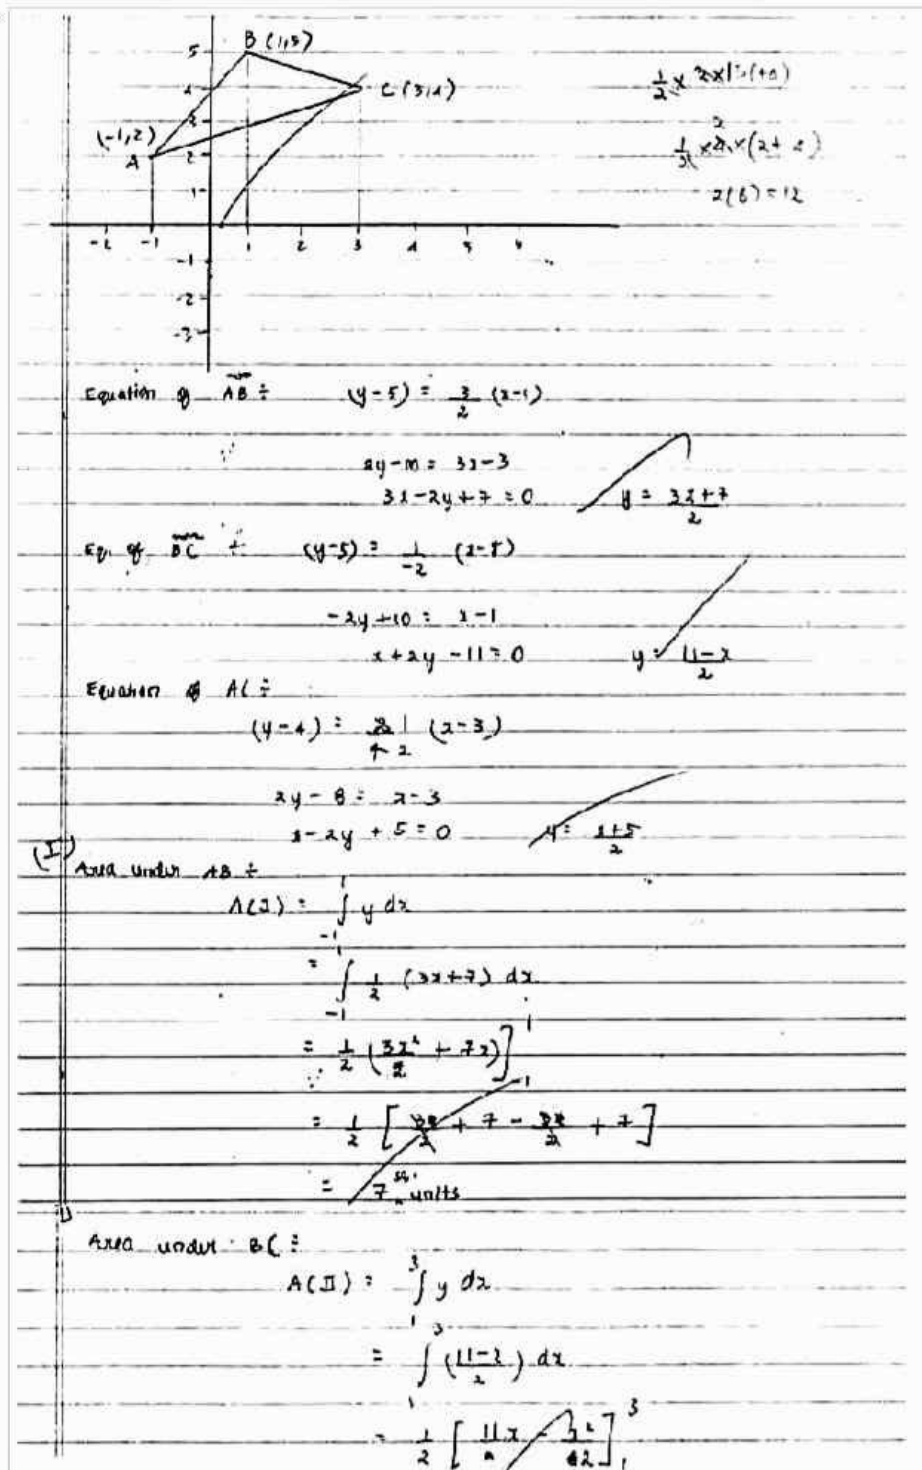 B (1,5)
5
4
C (3,4)
3
(-1,2)
A
2
1
-2 -1 1 2 3 4 5 6
-1
-2
-3
2(6) = 12
Equation of AB ÷ (y-5) = 3/2 (x-1)
2y-10 = 3x-3
3x-2y+7 = 0 y = 3x+7/2
Eq. of BC ÷ (y-5) = 1/-2
-2y+10 = x-1
x+2y-11 = 0 y = 11-x/2
Equation of AC ÷
(y-4) = 1/2 (x-3)
2y-8 = x-3
x-2y+5 = 0 y = x+5/2
(I)
Area under AB ÷
A(I) = ∫_{-1}^{1} y dx
= ∫_{-1}^{1} 1/2 (3x+7) dx
= 1/2 (3x²/2 + 7x)]_{-1}^{1}
= 1/2 [ 3/2 + 7 - 3/2 + 7 ]
= 7 sq. units
Area under BC ÷
A(II) = ∫_{1}^{3} y dx
= ∫_{1}^{3} (11-x/2) dx
= 1/2 [ 11x - x²/2 ]_{1}^{3}